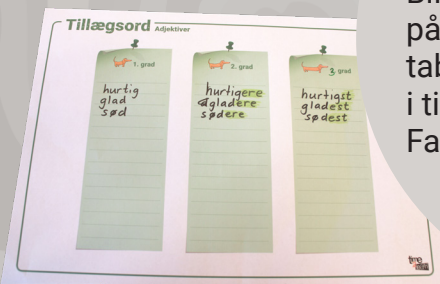 Tillægsord Adjektiver
1. grad
hurtig
glad
sød
2. grad
hurtigere
gladere
sødere
3. grad
hurtigst
gladest
sødest
på
tab
i ti
Fa